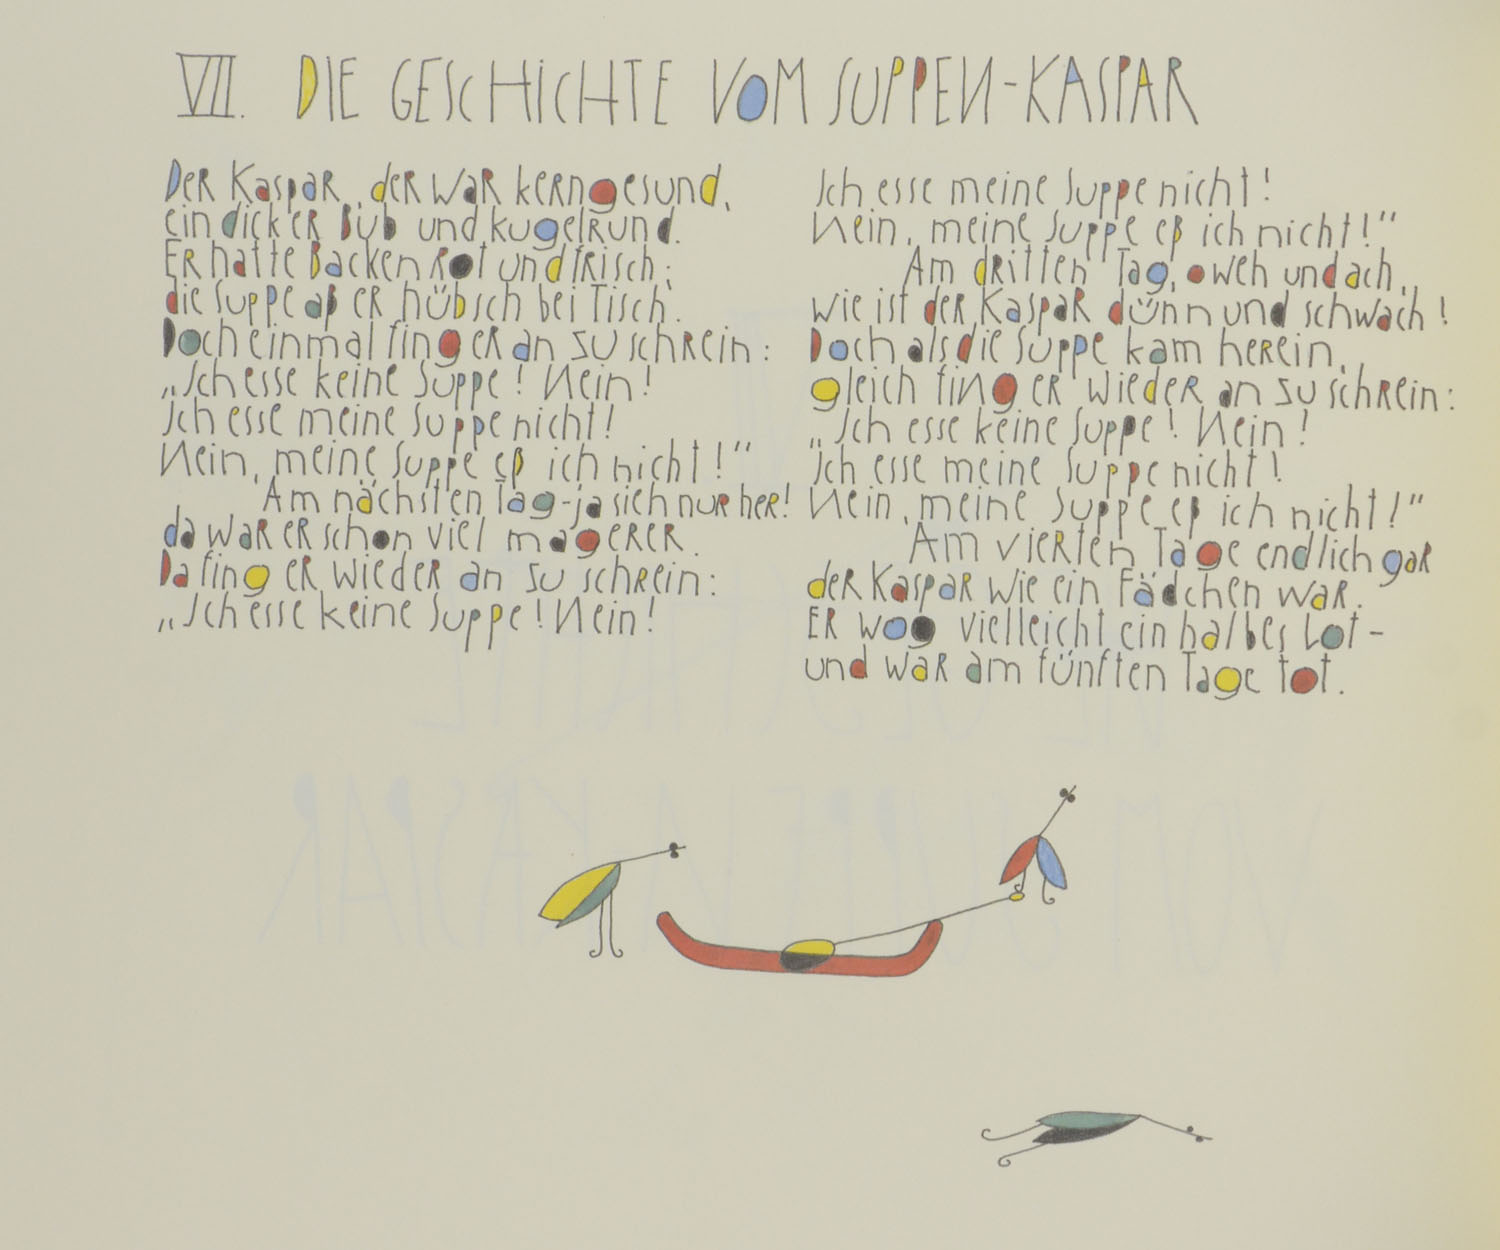 VII. DIE GESCHICHTE VOM SUPPEN-KASPAR
Der Kaspar, der war kerngesund,
ein dicker Bub und kugelrund.
Er hatte Backen rot und frisch;
die Suppe aß er hübsch bei Tisch.
Doch einmal fing er an zu schrein:
„Ich esse keine Suppe! Nein!
Ich esse meine Suppe nicht!
Nein, meine Suppe eß ich nicht!“
Am nächsten Tag - ja sieh nur her!
da war er schon viel magerer.
Da fing er wieder an zu schrein:
„Ich esse keine Suppe! Nein!
Ich esse meine Suppe nicht!
Nein, meine Suppe eß ich nicht!“
Am dritten Tag, o weh und ach,
wie ist der Kaspar dünn und schwach!
Doch als die Suppe kam herein,
gleich fing er wieder an zu schrein:
„Ich esse keine Suppe! Nein!
Ich esse meine Suppe nicht!
Nein, meine Suppe eß ich nicht!“
Am vierten Tage endlich gar
der Kaspar wie ein Fädchen war.
Er wog vielleicht ein halbes Lot -
und war am fünften Tage tot.